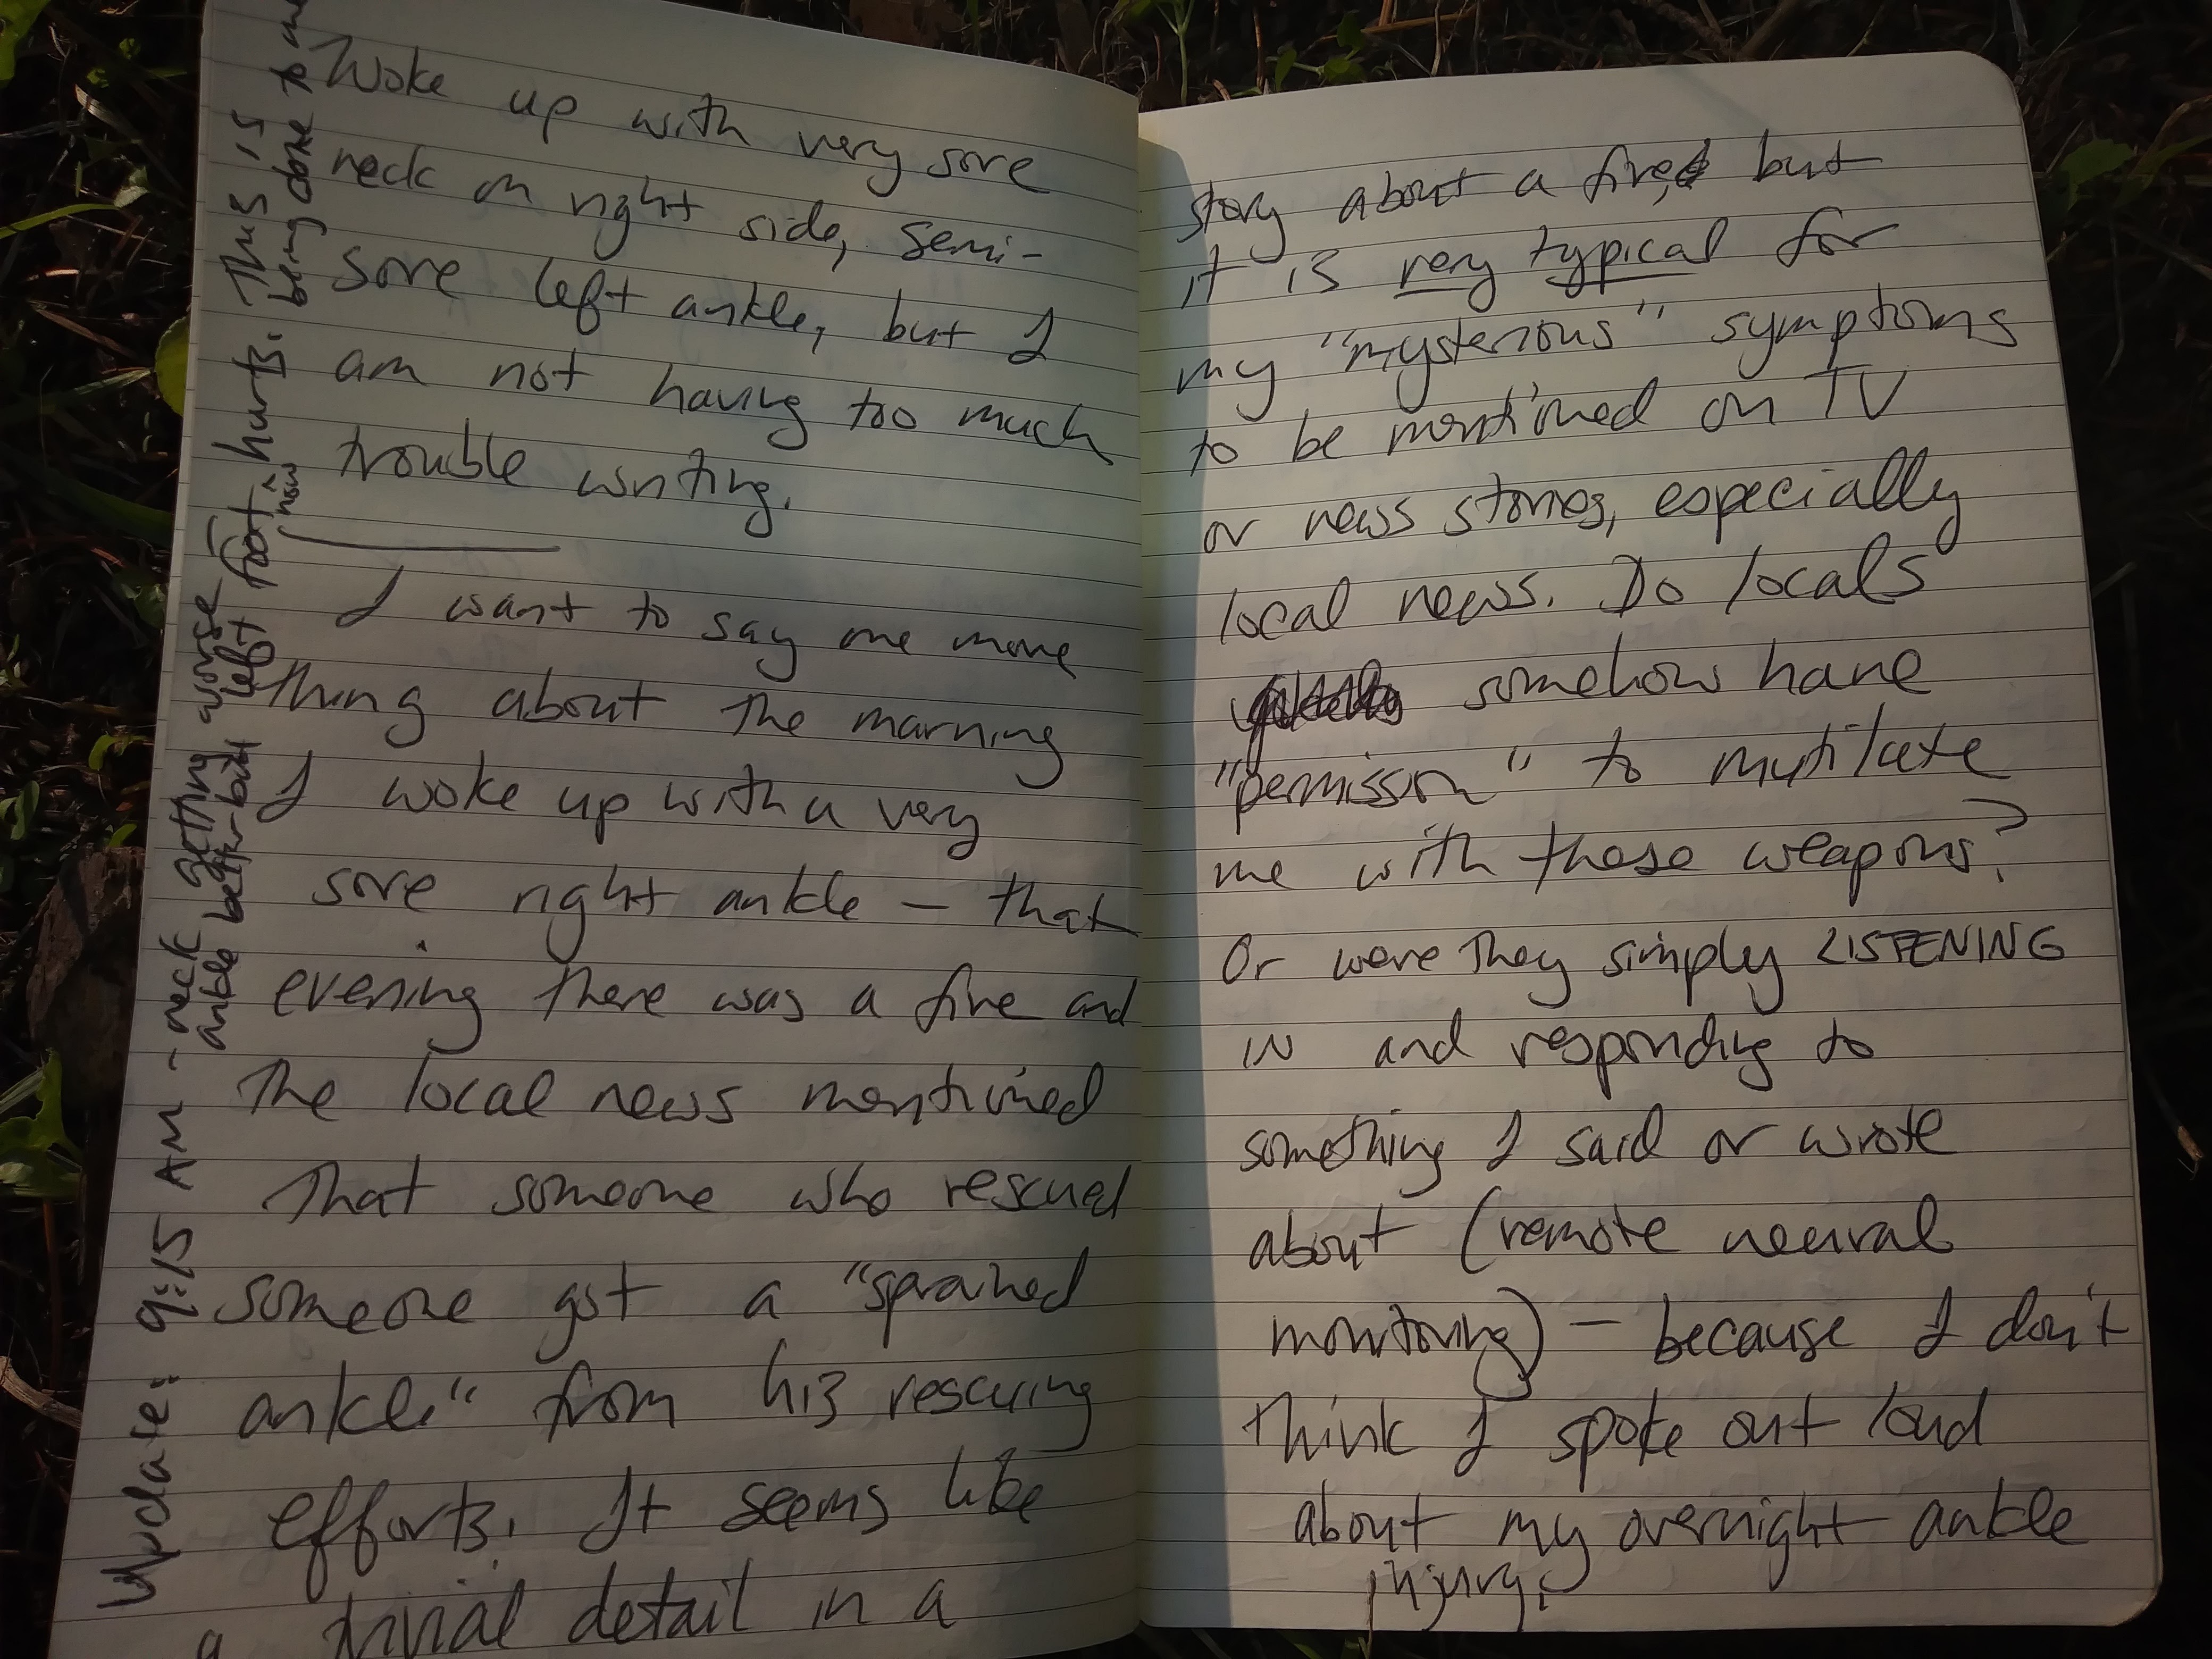 Woke up with very sore
neck on right side, semi-
sore left ankle, but I
am not having too much
trouble writing.
I want to say one more
thing about the morning
I woke up with a very
sore right ankle — that
evening there was a fire and
the local news mentioned
that someone who rescued
someone got a "sprained
ankle" from his rescuing
efforts. It seems like
a trivial detail in a
Update: 9:15 AM - neck getting worse
ankle better but left foot now hurts. This is
being done to me
story about a fire, but
it is very typical for
my "mysterious" symptoms
to be mentioned on TV
or news stories, especially
local news. Do locals
somehow have
"permission" to mutilate
me with these weapons?
Or were they simply LISTENING
IN and responding to
something I said or wrote
about (remote neural
monitoring) — because I don't
think I spoke out loud
about my overnight ankle
injury.